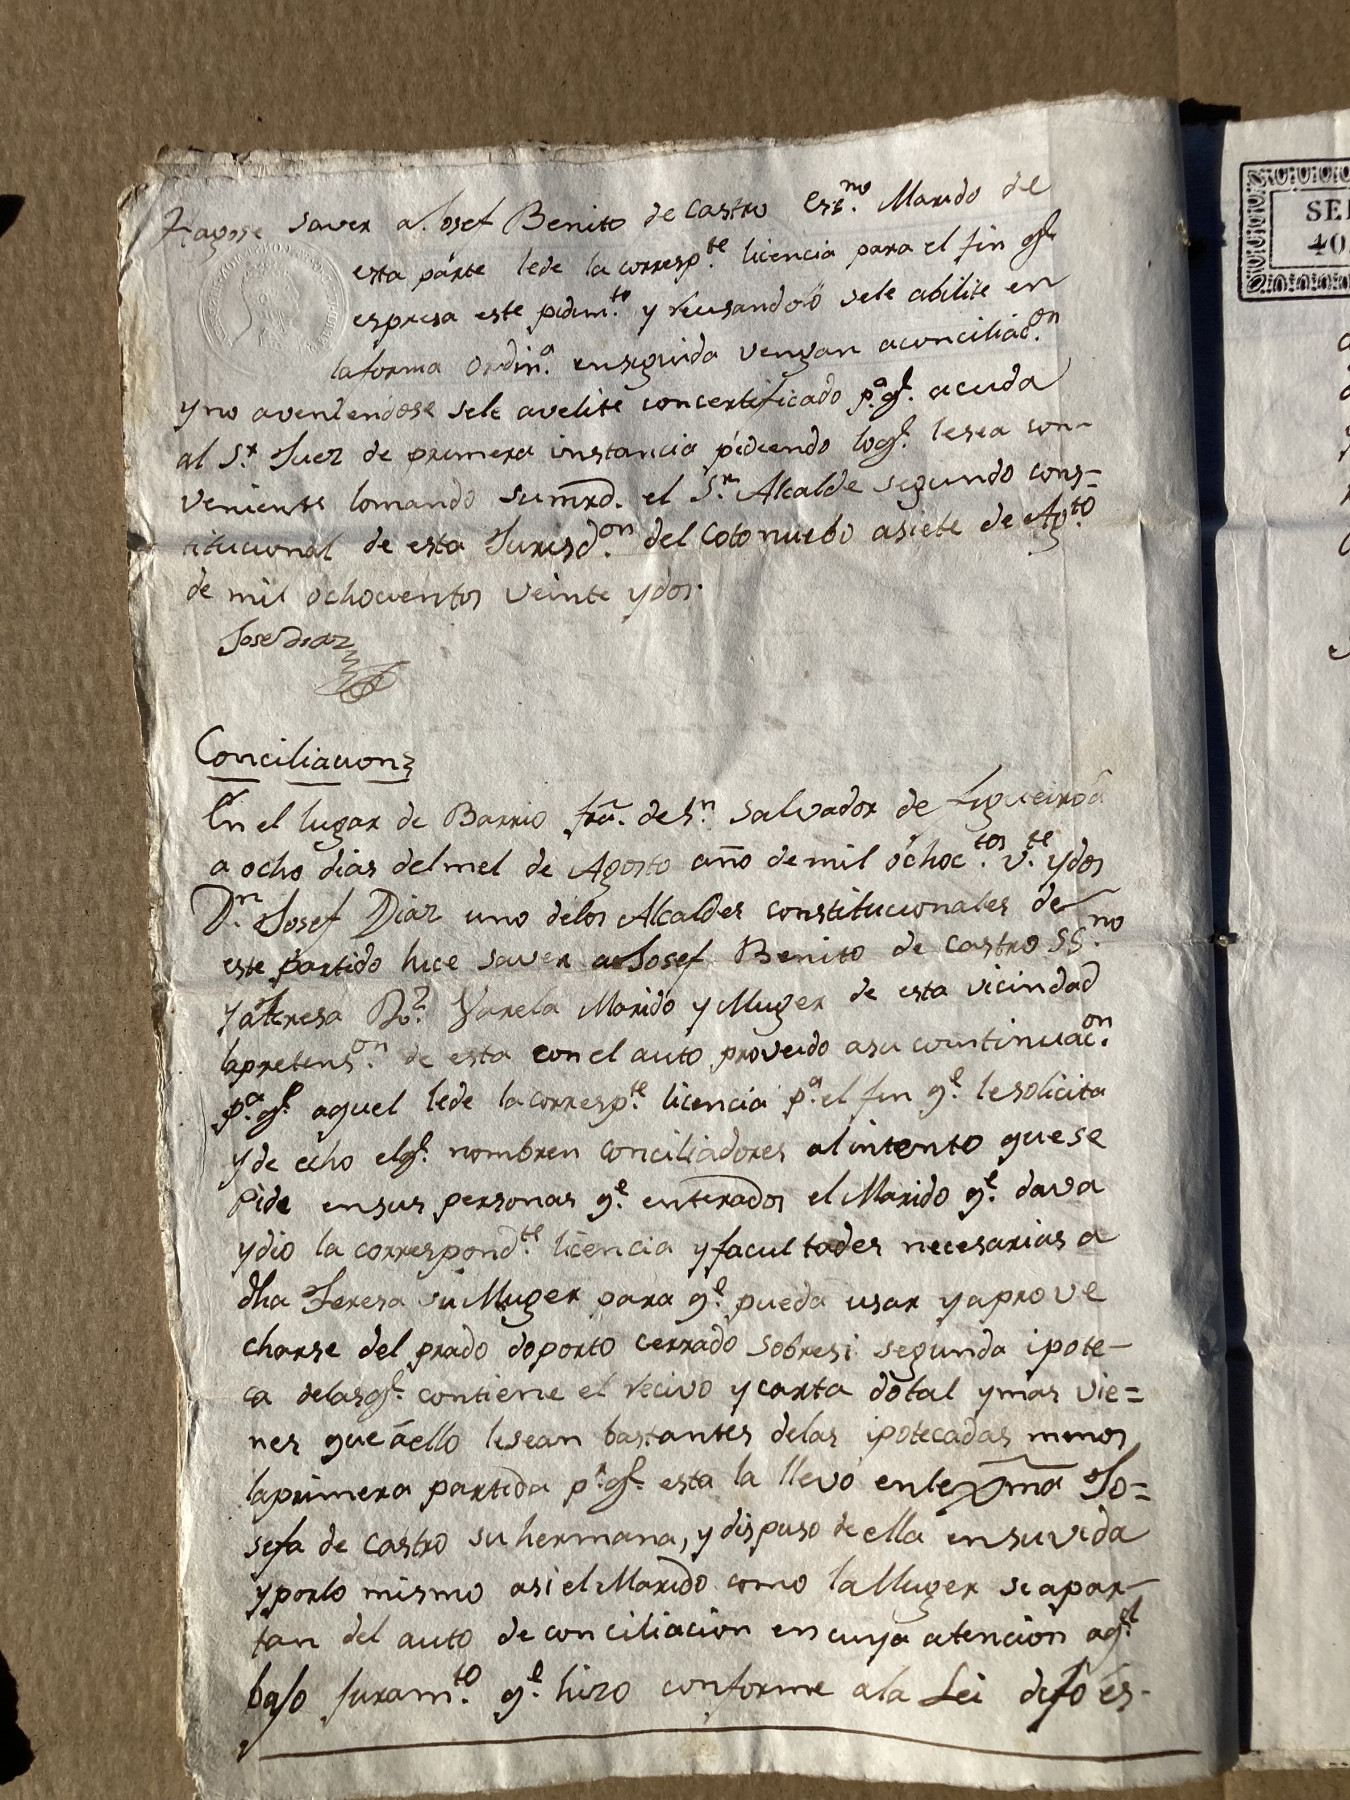 Hagase saver a Josef Benito de Castro Esno. Marido de
esta párte lede la correspte. licencia para el fin qe.
espresa este pedimto. y reusandolo sele abilite en
la forma Ordina. enseguida vengan aconciliacon.
y no aveniendose sele avelite concertificado pa. qe. acuda
al Sr. Juez de primera instancia pidiendo loqe. lesea con-
veniente lomando sumrd. el Sr. Alcalde segundo cons=
titucional de esta Jurisdon. del Coto nuebo asiete de Agto.
de mil ochocientos veinte ydos.
Jose Diaz
Conciliacion
En el lugar de Barrio fra. de Sn. Salvador de Figueiroa
a ocho dias del mes de Agosto año de mil óchoctos. vte. ydos
Dn. Josef Diaz uno delos Alcaldes constitucionales de
este partido hice saver a Josef Benito de Castro SSno.
y aTeresa Varela Marido y Muger de esta vicindad
lapretenson. de esta con el auto proveido asu continuacon.
pa. qe. aquel lede la correspte. licencia pa. el fin qe. lesolicita
y de echo elqe. nombren conciliadores alintento quese
pide ensus personas qe. enterados el Marido qe. dava
ydio la correspondte. licencia y facultades necesarias a
dha Teresa su Muger para qe. pueda usar yaprove
charse del prado doporto cerrado sobresi segunda ipote-
ca delasqe. contiene el recivo y carta dotal ymas vie=
nes que aello lesean bastantes delas ipotecadas menos
laprimera partida pr. qe. esta la llevó enlexma Jo=
sefa de Castro su hermana, y dispuso de ella ensuvida
yporlo mismo asi el Marido como la Muger se apar-
tan del auto de conciliacion encuya atencion aql.
bajo juramto. qe. hizo conforme ala Lei defo es-